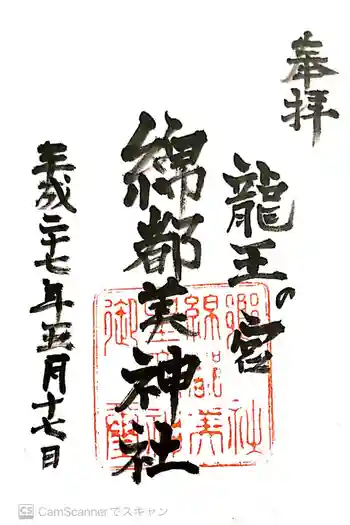 奉拝
龍王の宮
綿都美神社
平成二十七年五月十七日
CS CamScannerでスキャン